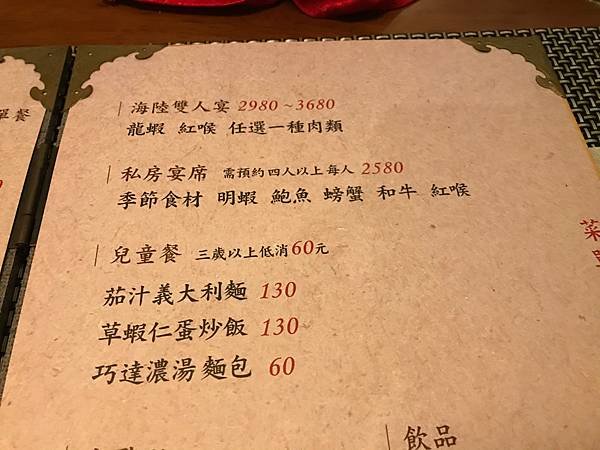 單餐
海陸雙人宴 2980 ~3680
龍蝦 紅喉 任選一種肉類
私房宴席 需預約四人以上每人 2580
季節食材 明蝦 鮑魚 螃蟹 和牛 紅喉
兒童餐 三歲以上低消60元
茄汁義大利麵 130
草蝦仁蛋炒飯 130
巧達濃湯麵包 60
飲品
菜